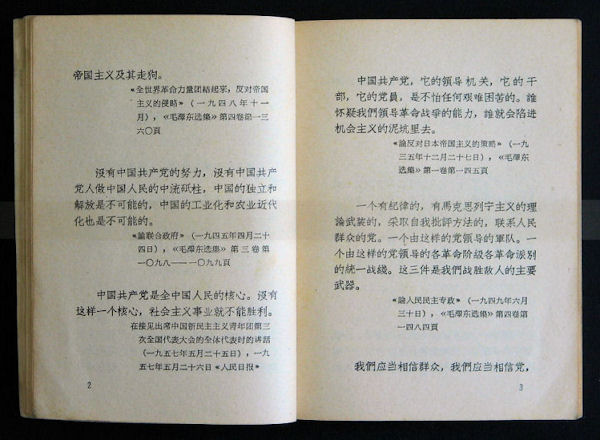 帝国主义及其走狗。
《全世界革命力量团结起来,反对帝国
主义的侵略》(一九四八年十一
月),《毛澤东选集》第四卷第一三
六〇頁
沒有中国共产党的努力,沒有中国共产
党人做中国人民的中流砥柱,中国的独立和
解放是不可能的,中国的工业化和农业近代
化也是不可能的。
《論联合政府》(一九四五年四月二十
四日),《毛澤东选集》第三卷第
一〇九八——一〇九九頁
中国共产党是全中国人民的核心。沒有
这样一个核心,社会主义事业就不能胜利。
在接见出席中国新民主主义青年团第三
次全国代表大会的全体代表时的講話
(一九五七年五月二十五日),一九
五七年五月二十六日《人民日报》
2
中国共产党,它的領导机关,它的干
部,它的党員,是不怕任何艰难困苦的。誰
怀疑我們領导革命战爭的能力,誰就会陷进
机会主义的泥坑里去。
《論反对日本帝国主义的策略》(一九
三五年十二月二十七日),《毛澤东
选集》第一卷第一四五頁
一个有紀律的,有馬克思列宁主义的理
論武装的,采取自我批評方法的,联系人民
群众的党。一个由这样的党領导的軍队。一
个由这样的党領导的各革命阶级各革命派别
的統一战綫。这三件是我們战胜敌人的主要
武器。
《論人民民主专政》(一九四九年六月
三十日),《毛澤东选集》第四卷第
一四八四頁
我們应当相信群众,我們应当相信党,
3